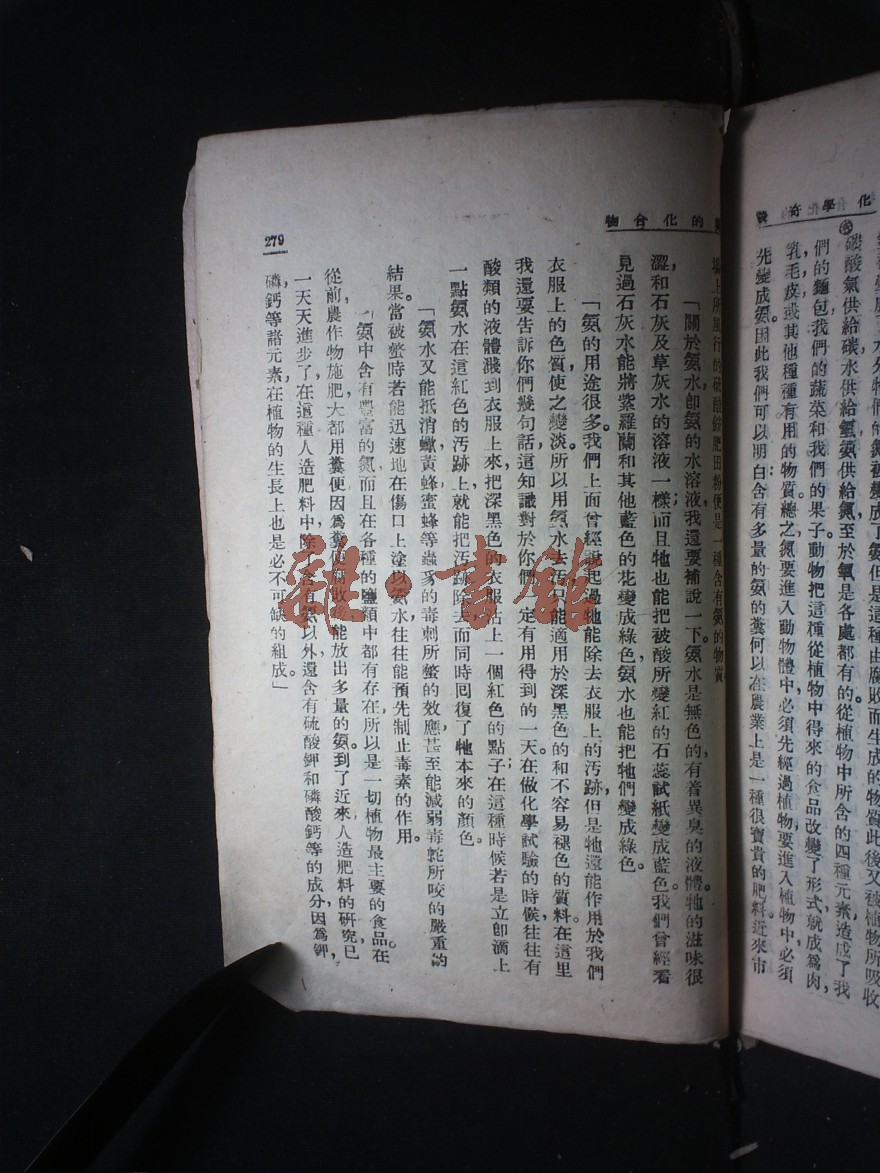 化學奇談
礬酸氣供給碳水供給氫氨供給氮至於氧是各處都有的從植物中所含的四種元素造成了我
們的麵包我們的蔬菜和我們的果子動物把這種從植物中得來的食品改變了形式就成爲肉,
乳毛皮或其他種種有用的物質總之氮要進入動物體中必須先經過植物要進入植物中必須
先變成氨因此我們可以明白含有多量的氨的糞何以在農業上是一種很寶貴的肥料近來市
的化合物
場上所風行的硫酸銨肥田粉便是一種含有氨的物質
「關於氨水即氨的水溶液我還要補說一下。氨水是無色的,有着異臭的液體。牠的滋味很
澀和石灰及草灰水的溶液一樣;而且牠也能把被酸所變紅的石蕊試紙變成藍色。我們曾經看
見過石灰水能將紫羅蘭和其他藍色的花變成綠色,氨水也能把牠們變成綠色。
「氨的用途很多。我們上面曾經說起過牠能除去衣服上的汚跡。但是牠還能作用於我們
衣服上的色質,使之變淡。所以用氨水去
只能適用於深黑色的和不容易褪色的質料。在這里
我還要告訴你們幾句話,這知識對於你們
定有用得到的一天。在做化學試驗的時候,往往有
酸類的液體濺到衣服上來,把深黑色的衣服沾上一個紅色的點子;在這種時候,若是立卽滴上
一點氨水在這紅色的汚跡上,就能把汚跡除去,而同時囘復了牠本來的顏色。
「氨水又能抵消蠍,黃蜂,蜜蜂等蟲豸的毒刺所螫的效應,甚至能減弱毒蛇所咬的嚴重的
結果。當被螫時,若能迅速地在傷口上塗以氨水,往往能預先制止毒素的作用。
「氨中含有豐富的氮,而且在各種的鹽類中都有存在,所以是一切植物最主要的食品。在
從前,農作物施肥,大都用糞便,因爲糞便腐敗後能放出多量的氨。到了近來,人造肥料的研究已
一天天進步了,在這種人造肥料中,除了含有氨以外,還含有硫酸鉀和磷酸鈣等的成分,因爲鉀,
磷,鈣等諸元素,在植物的生長上也是必不可缺的組成。」
279
雜·書館